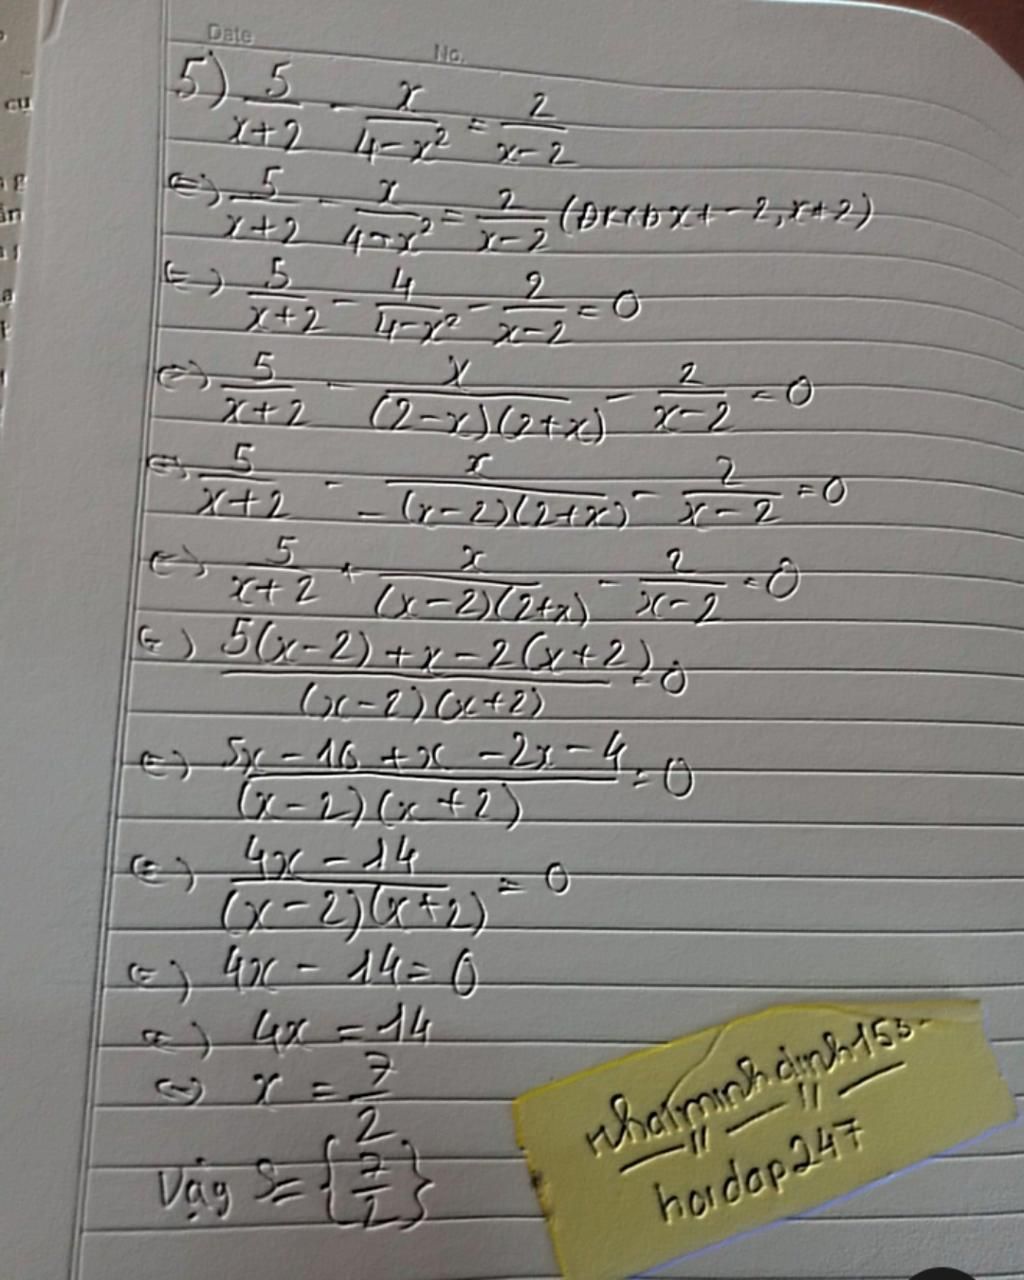 Date No.
5) 5/(x+2) - x/(4-x²) = 2/(x-2)
⇔) 5/(x+2) - x/(4-x²) = 2/(x-2) (ĐKXĐ x ≠ -2, x ≠ 2)
⇔) 5/(x+2) - 4/(4-x²) - 2/(x-2) = 0
⇔) 5/(x+2) - x/((2-x)(2+x)) - 2/(x-2) = 0
⇔) 5/(x+2) - x/(-(x-2)(2+x)) - 2/(x-2) = 0
⇔) 5/(x+2) + x/((x-2)(2+x)) - 2/(x-2) = 0
⇔) (5(x-2) + x - 2(x+2))/((x-2)(x+2)) = 0
⇔) (5x - 10 + x - 2x - 4)/((x-2)(x+2)) = 0
⇔) (4x - 14)/((x-2)(x+2)) = 0
⇔) 4x - 14 = 0
⇔) 4x = 14
⇔) x = 7/2
Vậy S = {7/2}
nhatminhdinh153
hoidap247